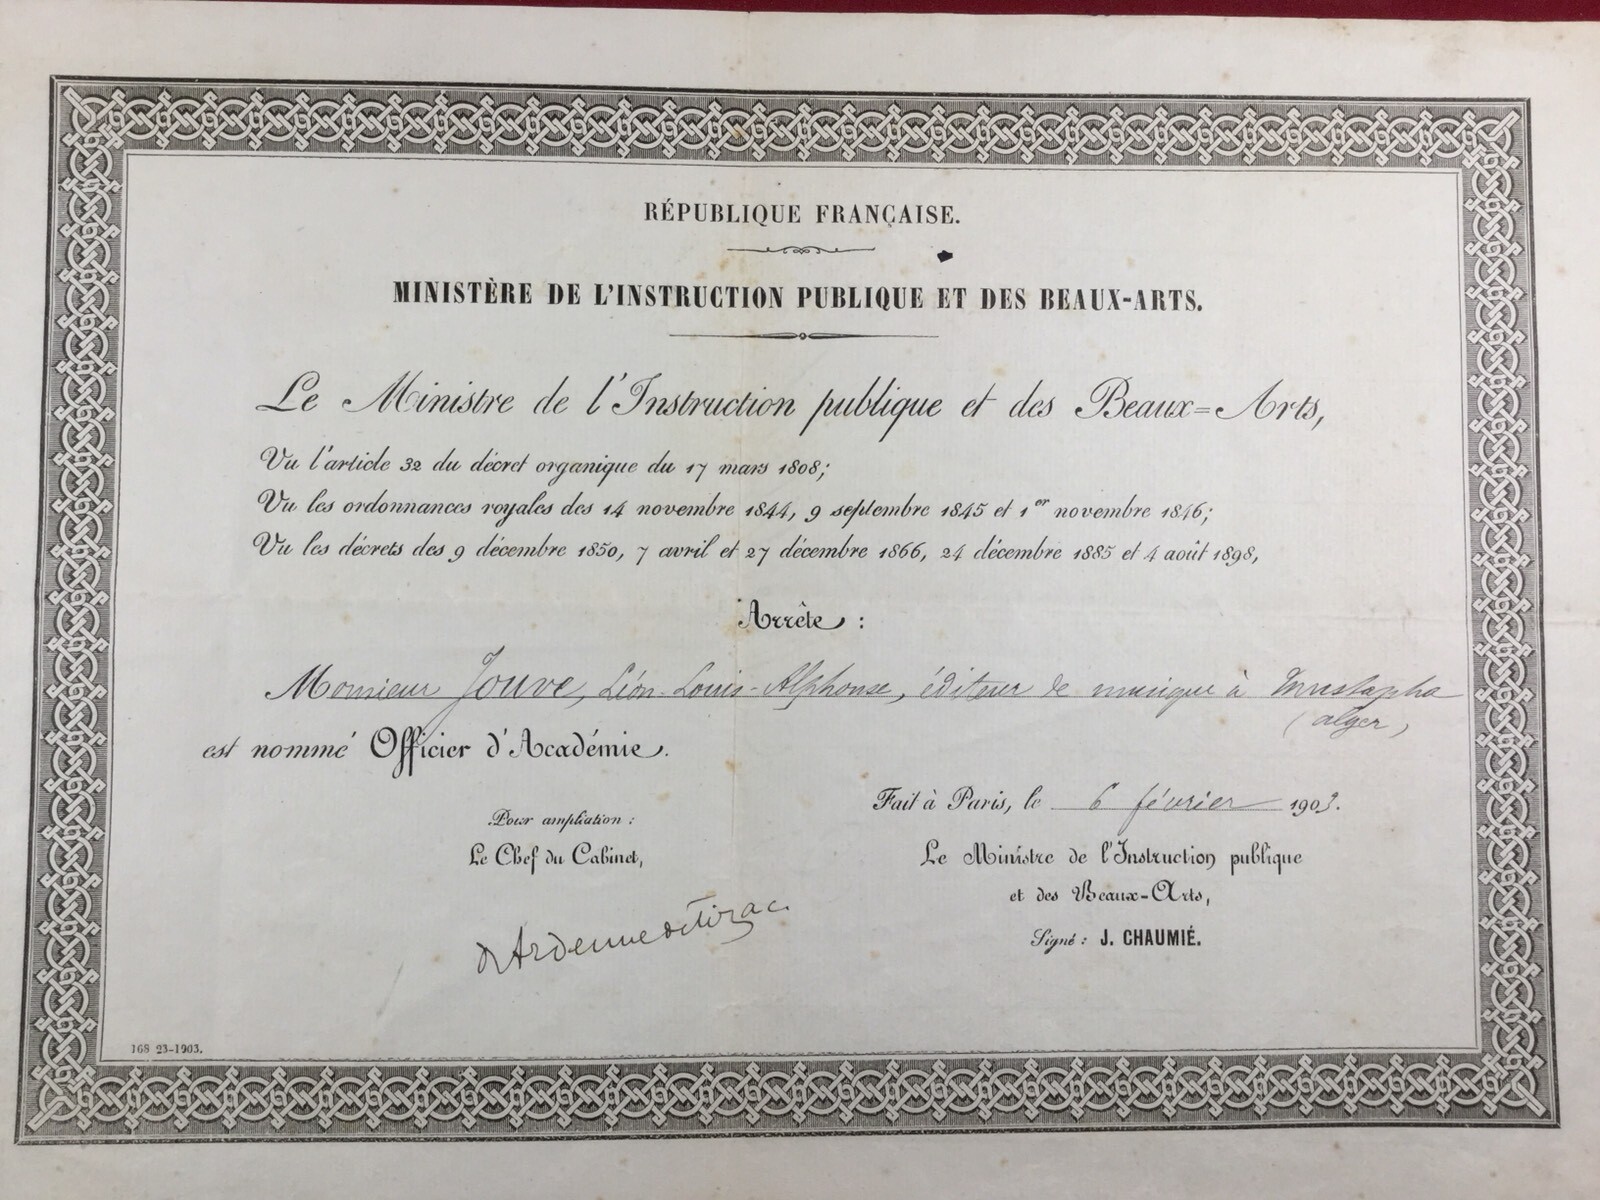 RÉPUBLIQUE FRANÇAISE.
MINISTÈRE DE L'INSTRUCTION PUBLIQUE ET DES BEAUX-ARTS.
Le Ministre de l'Instruction publique et des Beaux=Arts,
Vu l'article 32 du décret organique du 17 mars 1808;
Vu les ordonnances royales des 14 novembre 1844, 9 septembre 1845 et 1er novembre 1846;
Vu les décrets des 9 décembre 1850, 7 avril et 27 décembre 1866, 24 décembre 1885 et 4 août 1898,
Arrête :
Monsieur Jouve, Léon-Louis-Alphonse, éditeur de musique à Mustapha
(alger)
est nommé Officier d'Académie.
Fait à Paris, le 6 février 1903.
Pour ampliation :
Le Chef du Cabinet,
d'Ardenne de Tizac.
Le Ministre de l'Instruction publique
et des Beaux-Arts,
Signé : J. CHAUMIÉ.
168 23-1903.